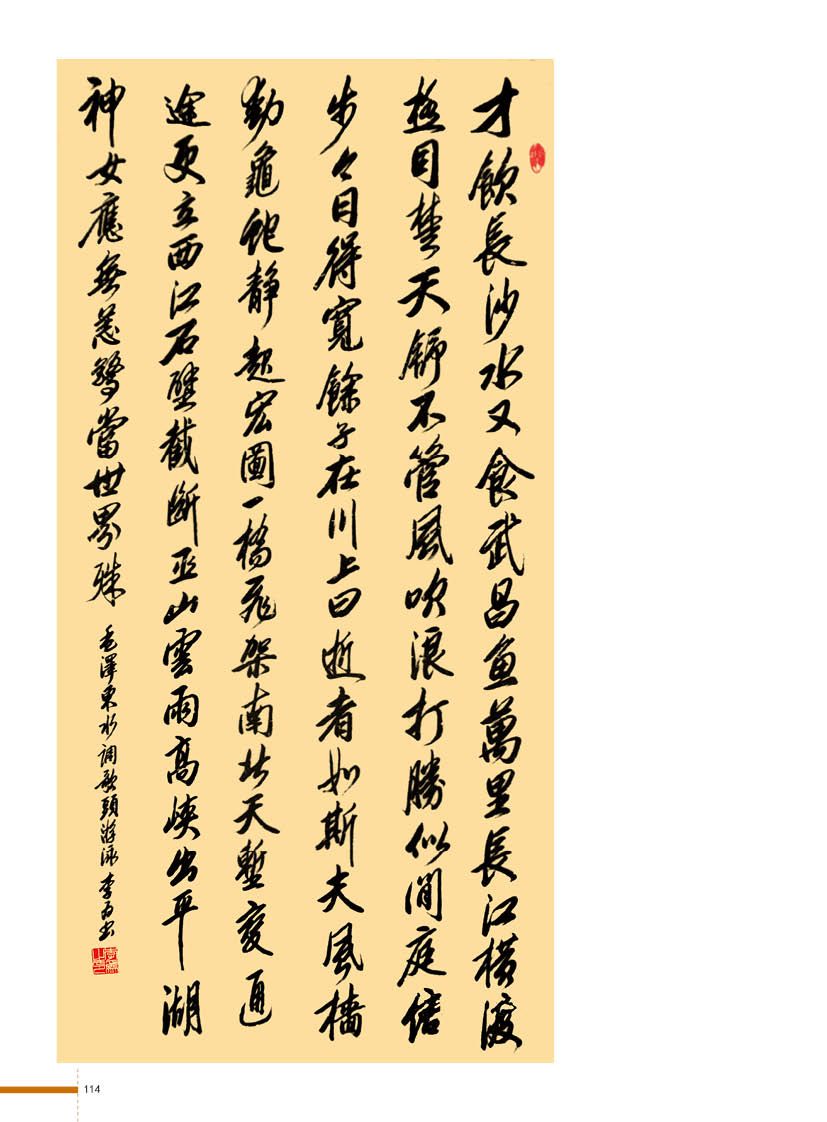 才飲長沙水又食武昌魚萬里長江橫渡
極目楚天舒不管風吹浪打勝似閒庭信
步今日得寬餘子在川上曰逝者如斯夫風檣
動龜蛇靜起宏圖一橋飛架南北天塹變通
途更立西江石壁截斷巫山雲雨高峽出平湖
神女應無恙驚當世界殊
毛澤東水调歌頭游泳 李
114